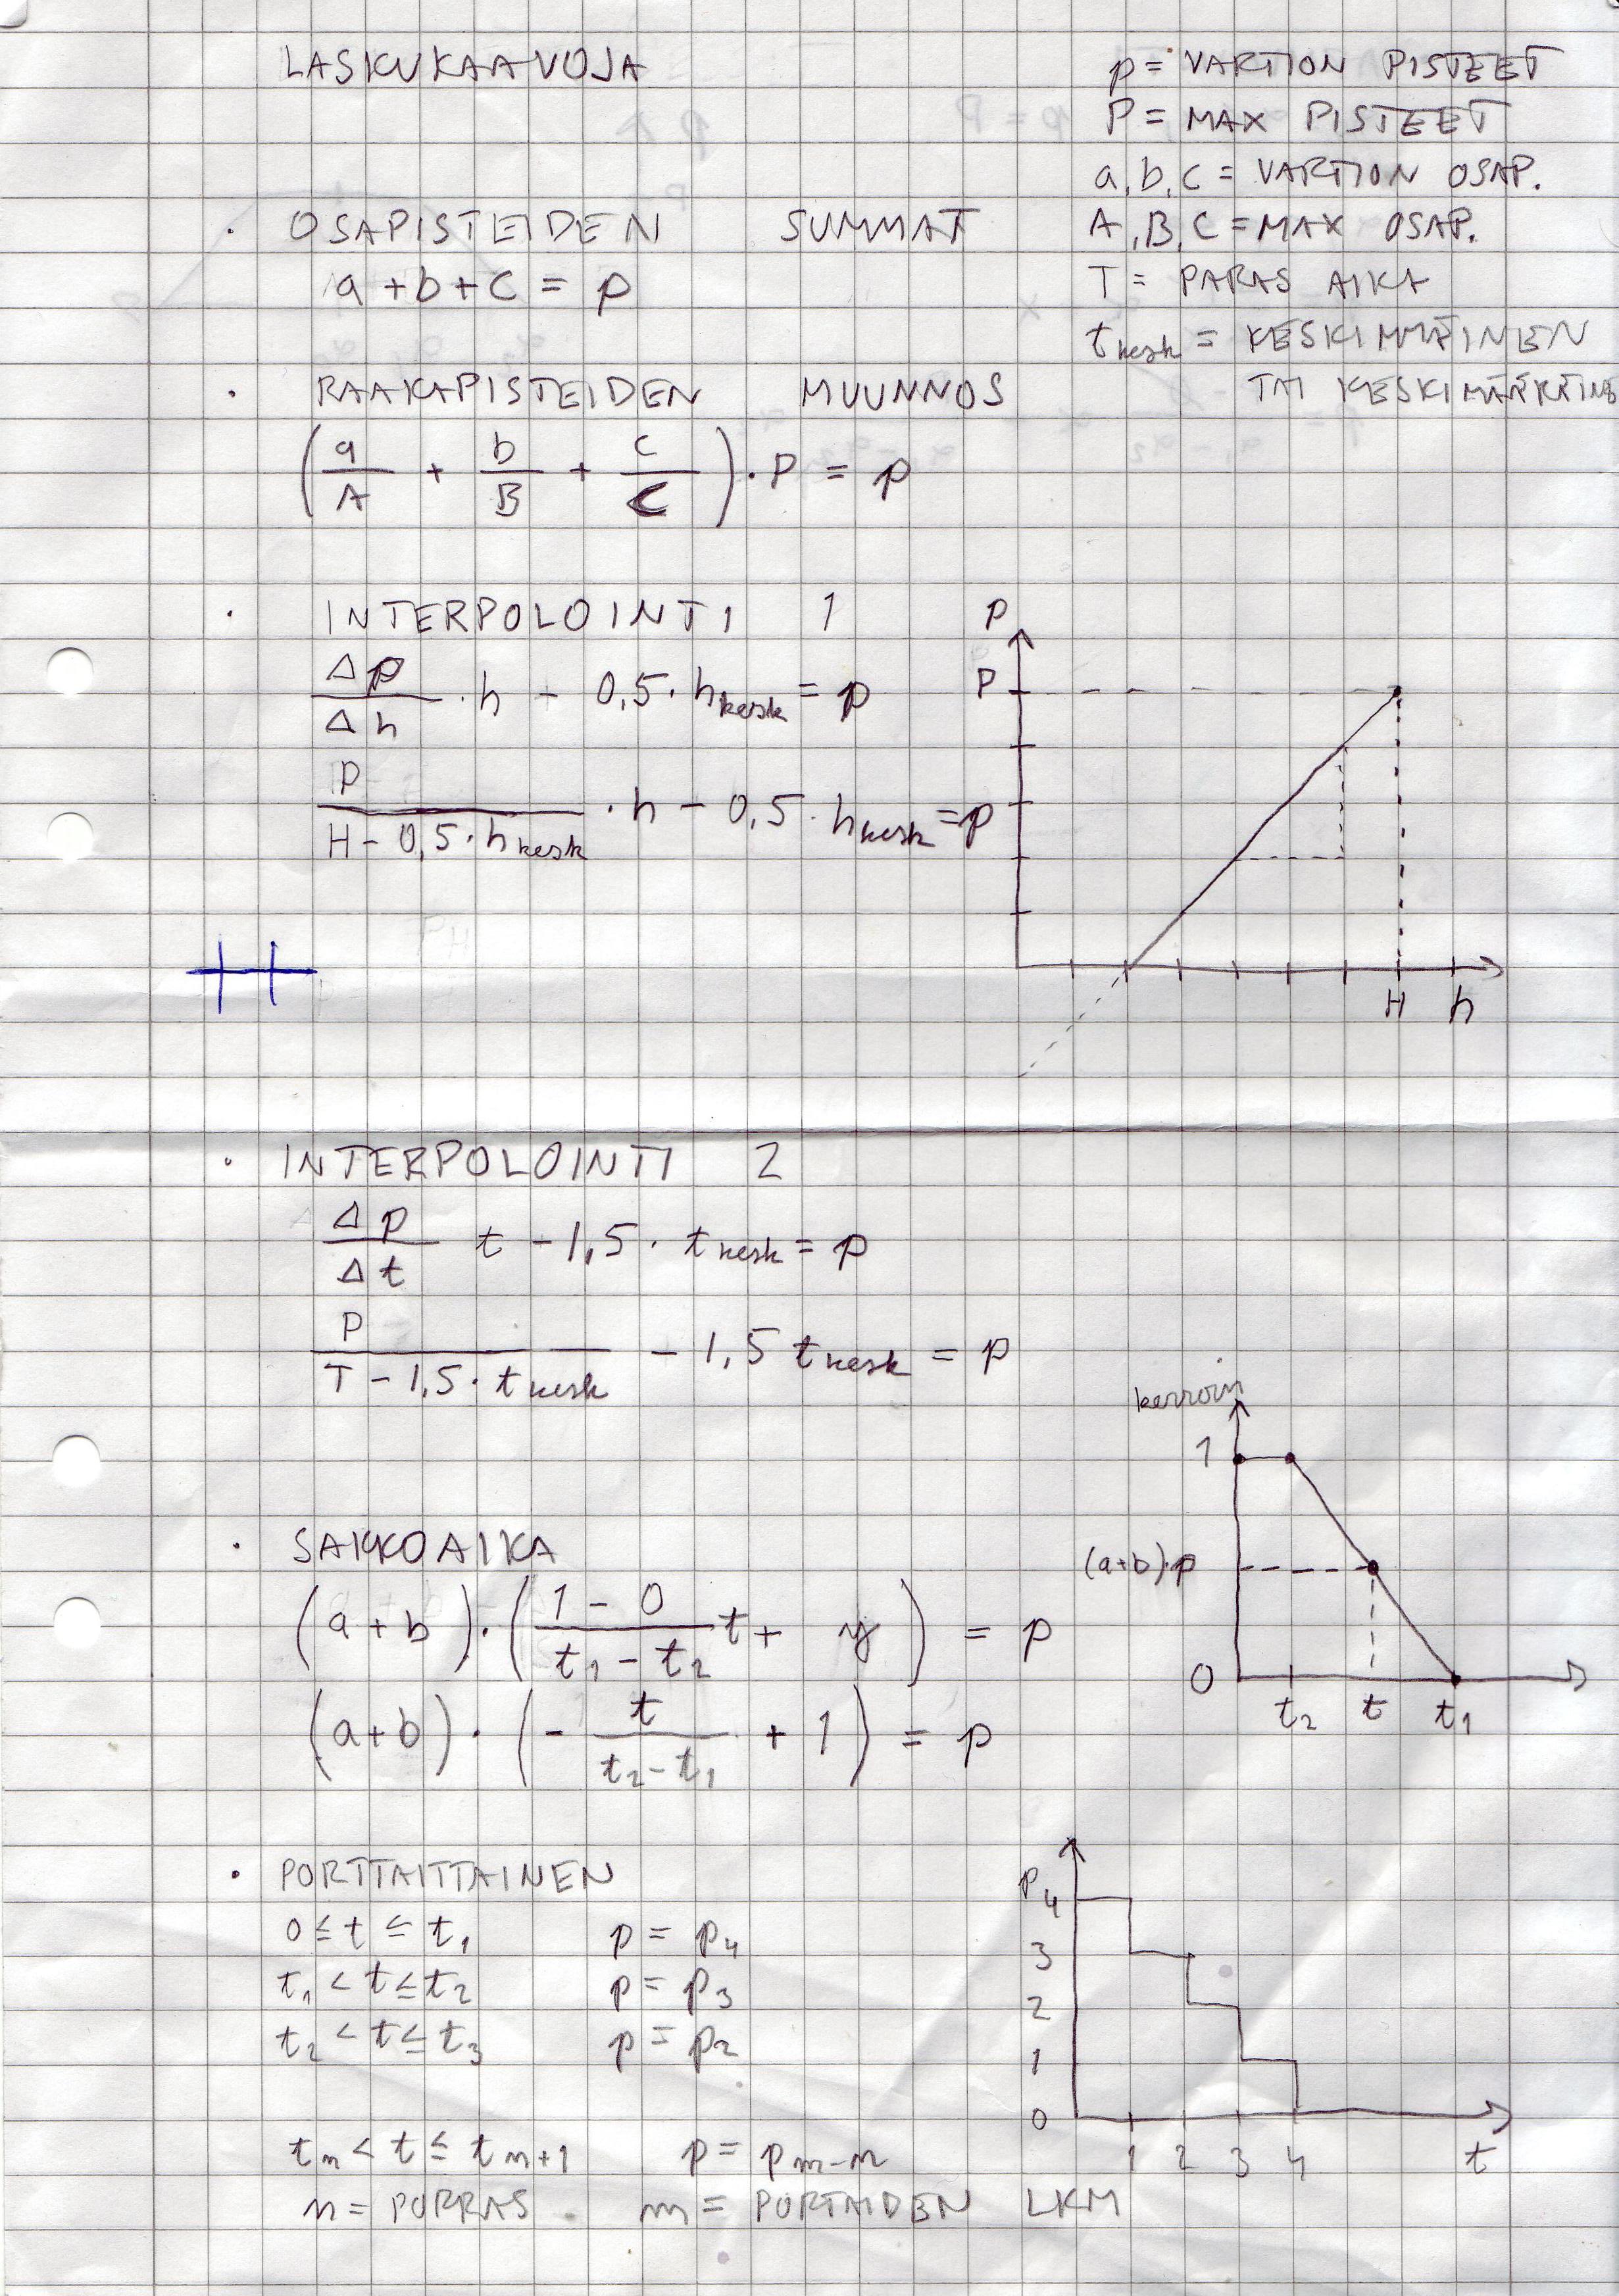 LASKUKAAVOJA
p = VARTION PISTEET
P = MAX PISTEET
a, b, c = VARTION OSAP.
A, B, C = MAX OSAP.
T = PARAS AIKA
t kesk = KESKIMMÄINEN
TAI KESKIMÄÄRÄINE
· OSAPISTEIDEN SUMMAT
a + b + c = p
· RAAKAPISTEIDEN MUUNNOS
(a/A + b/B + c/C) · P = p
· INTERPOLOINTI 1
Δp/Δh · h - 0,5 · h kesk = p
P/(H - 0,5 · h kesk) · h - 0,5 · h kesk = p
p
P
H h
· INTERPOLOINTI 2
Δp/Δt t - 1,5 · t kesk = p
P/(T - 1,5 · t kesk) - 1,5 t kesk = p
kerroin
1
(a+b)·p
0
t₂ t t₁
· SAKKOAIKA
(a + b) · ((1 - 0)/(t₁ - t₂) t + y) = p
(a+b) · (- t/(t₂ - t₁) + 1) = p
· PORTTAITTAINEN
0 ≤ t ≤ t₁ p = p₄
t₁ < t ≤ t₂ p = p₃
t₂ < t ≤ t₃ p = p₂
tₙ < t ≤ tₙ₊₁ p = pₘ₋ₙ
n = PORRAS m = PORTAIDEN LKM
P₄
3
2
1
0
1 2 3 4 t